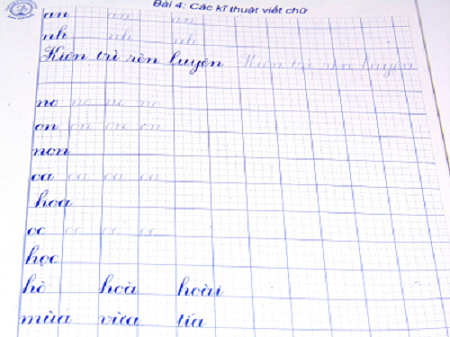 Bài 4: Các kĩ thuật viết chữ
an an an
nh nh nh
Kiên trì rèn luyện Kiên trì rèn luyện
no no no no
on on on on
non
oa oa oa oa
hoa
oc oc oc oc
học
hò hoà hoài
mùa vừa tía